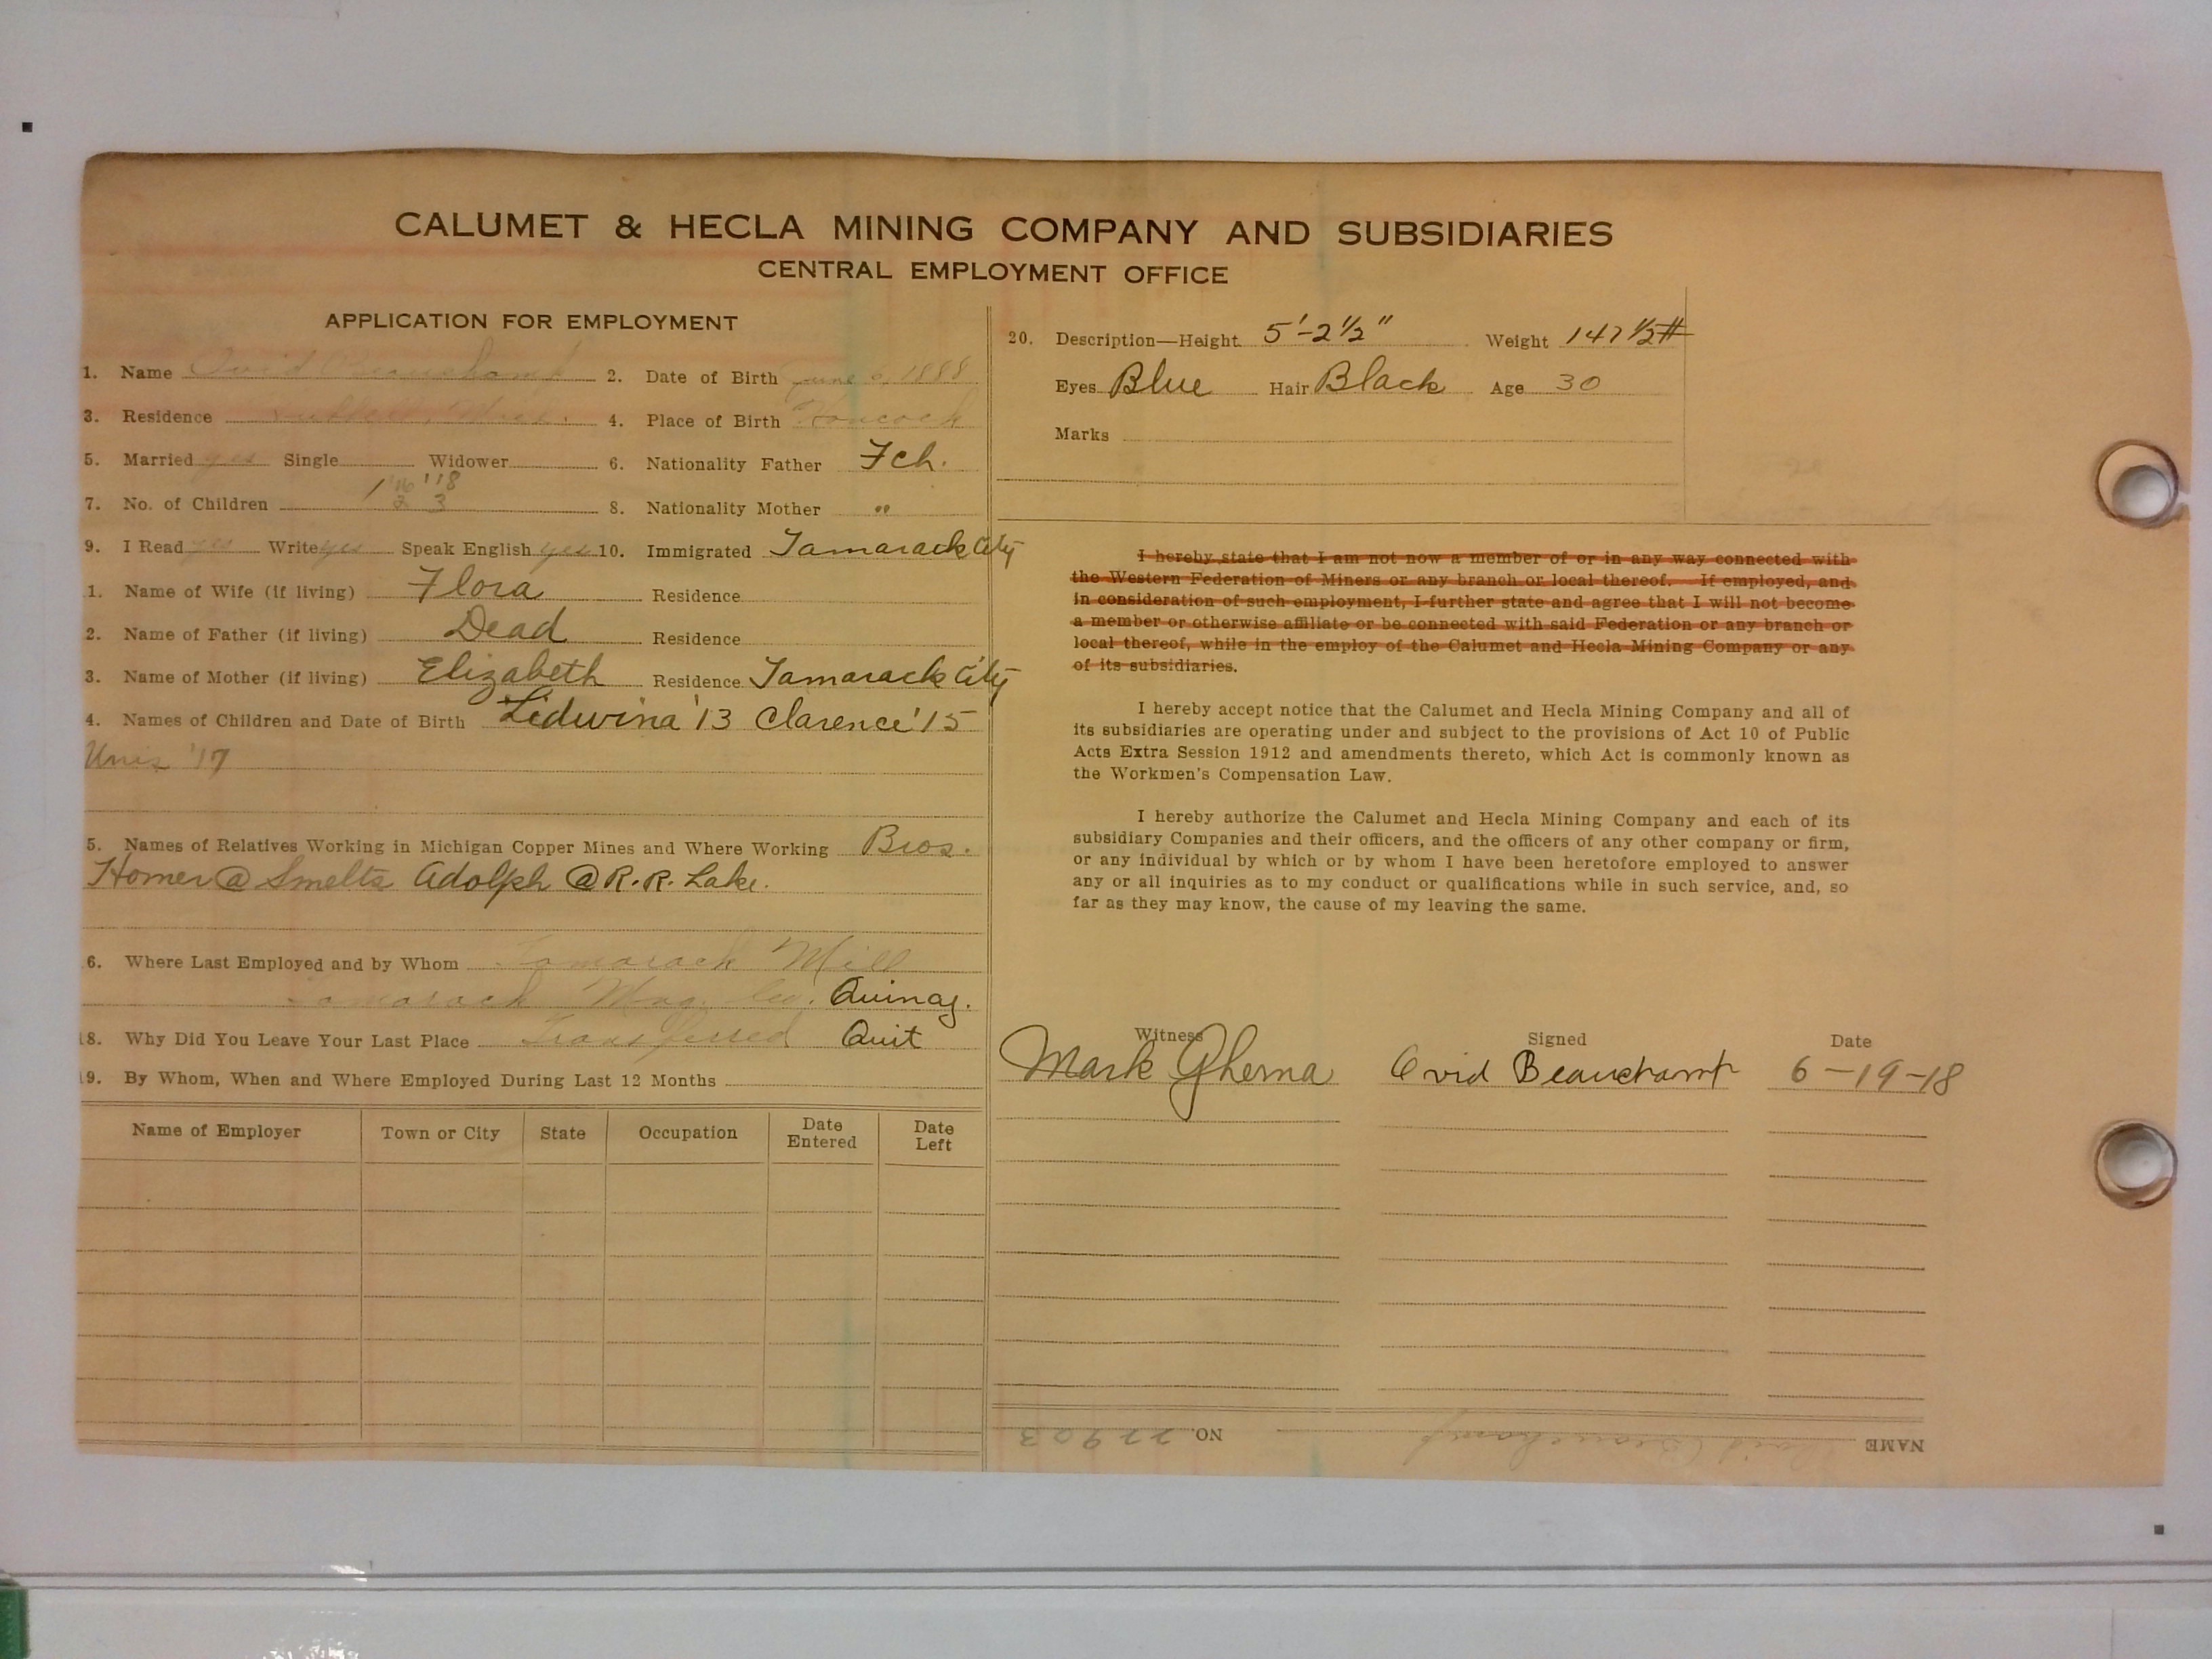 CALUMET & HECLA MINING COMPANY AND SUBSIDIARIES
CENTRAL EMPLOYMENT OFFICE
APPLICATION FOR EMPLOYMENT
1. Name Ovid Beauchamp 2. Date of Birth June 1888
3. Residence 4. Place of Birth Hancock
5. Married yes Single Widower 6. Nationality Father Fch.
'16 '18
7. No. of Children 1 2 3 8. Nationality Mother "
9. I Read yes Write yes Speak English yes 10. Immigrated Tamarack City
1. Name of Wife (if living) Flora Residence
2. Name of Father (if living) Dead Residence
3. Name of Mother (if living) Elizabeth Residence Tamarack City
4. Names of Children and Date of Birth Lidwina '13 Clarence '15
'17
5. Names of Relatives Working in Michigan Copper Mines and Where Working Bros.
Homer @ Smelts Adolph @ R.R. Lake.
6. Where Last Employed and by Whom Tamarack Mill
Tamarack Mng. Co. Quincy.
18. Why Did You Leave Your Last Place Transferred Quit
19. By Whom, When and Where Employed During Last 12 Months
Name of Employer Town or City State Occupation Date Entered Date Left
20. Description—Height 5'-2 1/2" Weight 147 1/2 #
Eyes Blue Hair Black Age 30
Marks
I hereby state that I am not now a member of or in any way connected with
the Western Federation of Miners or any branch or local thereof. If employed, and
in consideration of such employment, I further state and agree that I will not become
a member or otherwise affiliate or be connected with said Federation or any branch or
local thereof, while in the employ of the Calumet and Hecla Mining Company or any
of its subsidiaries.
I hereby accept notice that the Calumet and Hecla Mining Company and all of
its subsidiaries are operating under and subject to the provisions of Act 10 of Public
Acts Extra Session 1912 and amendments thereto, which Act is commonly known as
the Workmen's Compensation Law.
I hereby authorize the Calumet and Hecla Mining Company and each of its
subsidiary Companies and their officers, and the officers of any other company or firm,
or any individual by which or by whom I have been heretofore employed to answer
any or all inquiries as to my conduct or qualifications while in such service, and, so
far as they may know, the cause of my leaving the same.
Witness Signed Date
Mark Ghema Ovid Beauchamp 6-19-18
NAME Ovid Beauchamp NO. 22903